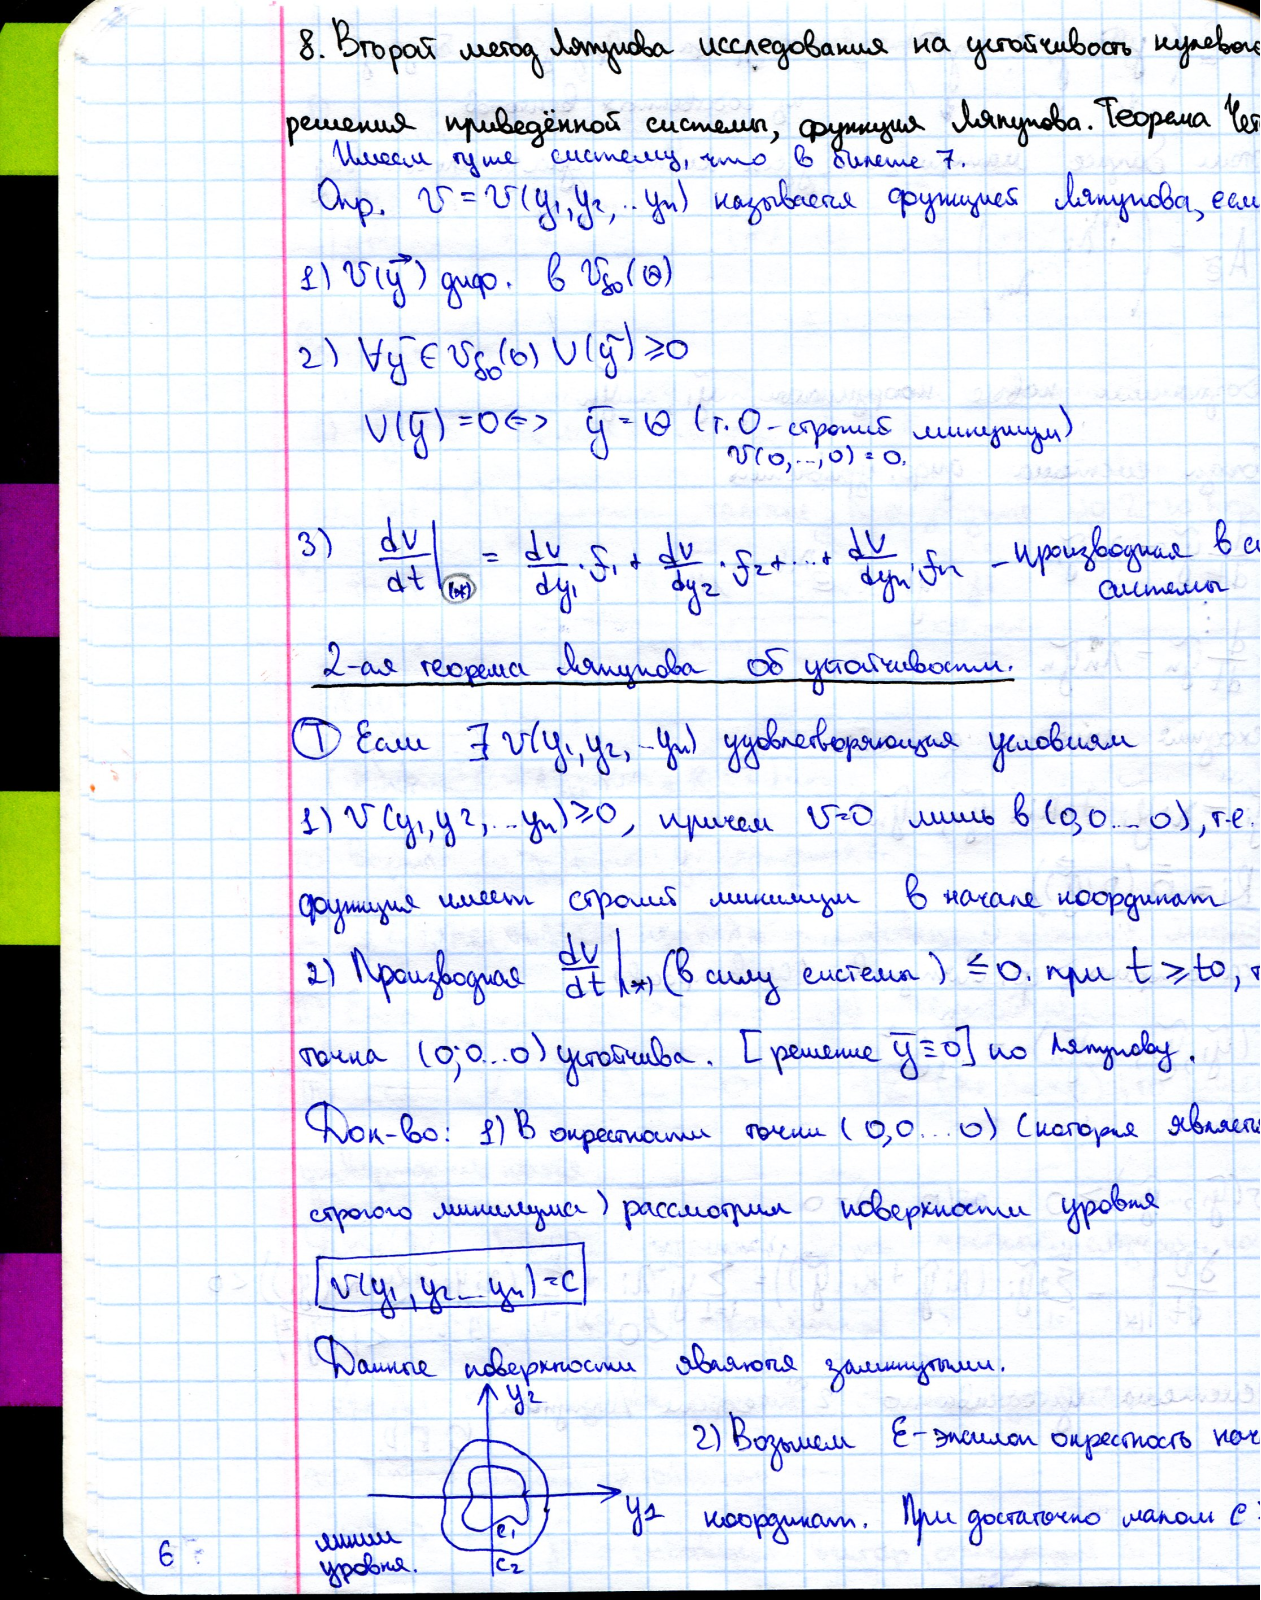 8. Второй метод Ляпунова исследования на устойчивость нулевого
решения приведённой системы, функция Ляпунова. Теорема Чет
Имеем ту же систему, что в билете 7.
Опр. V = V(y₁, y₂, .. yₙ) называется функцией Ляпунова, если
1) V(y⃗) диф. в V_δ₀(Θ)
2) ∀ȳ ∈ V_δ₀(0) V(ȳ) ≥ 0
V(ȳ) = 0 <=> ȳ = Θ (т. О - строгий минимум)
V(0,...,0) = 0.
3) dV/dt |(*) = dV/dy₁ · f₁ + dV/dy₂ · f₂ + ... + dV/dyₙ · fₙ - производная в си
системы
2-ая теорема Ляпунова об устойчивости.
Ⓣ Если ∃ V(y₁, y₂, .. yₙ) удовлетворяющая условиям
1) V(y₁, y₂, ... yₙ) ≥ 0, причем V=0 лишь в (0,0...0), т.е.
функция имеет строгий минимум в начале координат
2) Производная dV/dt |(*) (в силу системы) ≤ 0. при t ≥ t₀, т
точка (0;0...0) устойчива. [решение ȳ ≡ 0] по Ляпунову.
Док-во: 1) В окрестности точки (0,0...0) (которая является
строгого минимума) рассмотрим поверхности уровня
V(y₁, y₂ ... yₙ) = C
Данные поверхности являются замкнутыми.
y₂
2) Возьмем ε-эпсилон окрестность нач
y₁
координат. При достаточно малом C
c₁
c₂
линии
уровня.
6